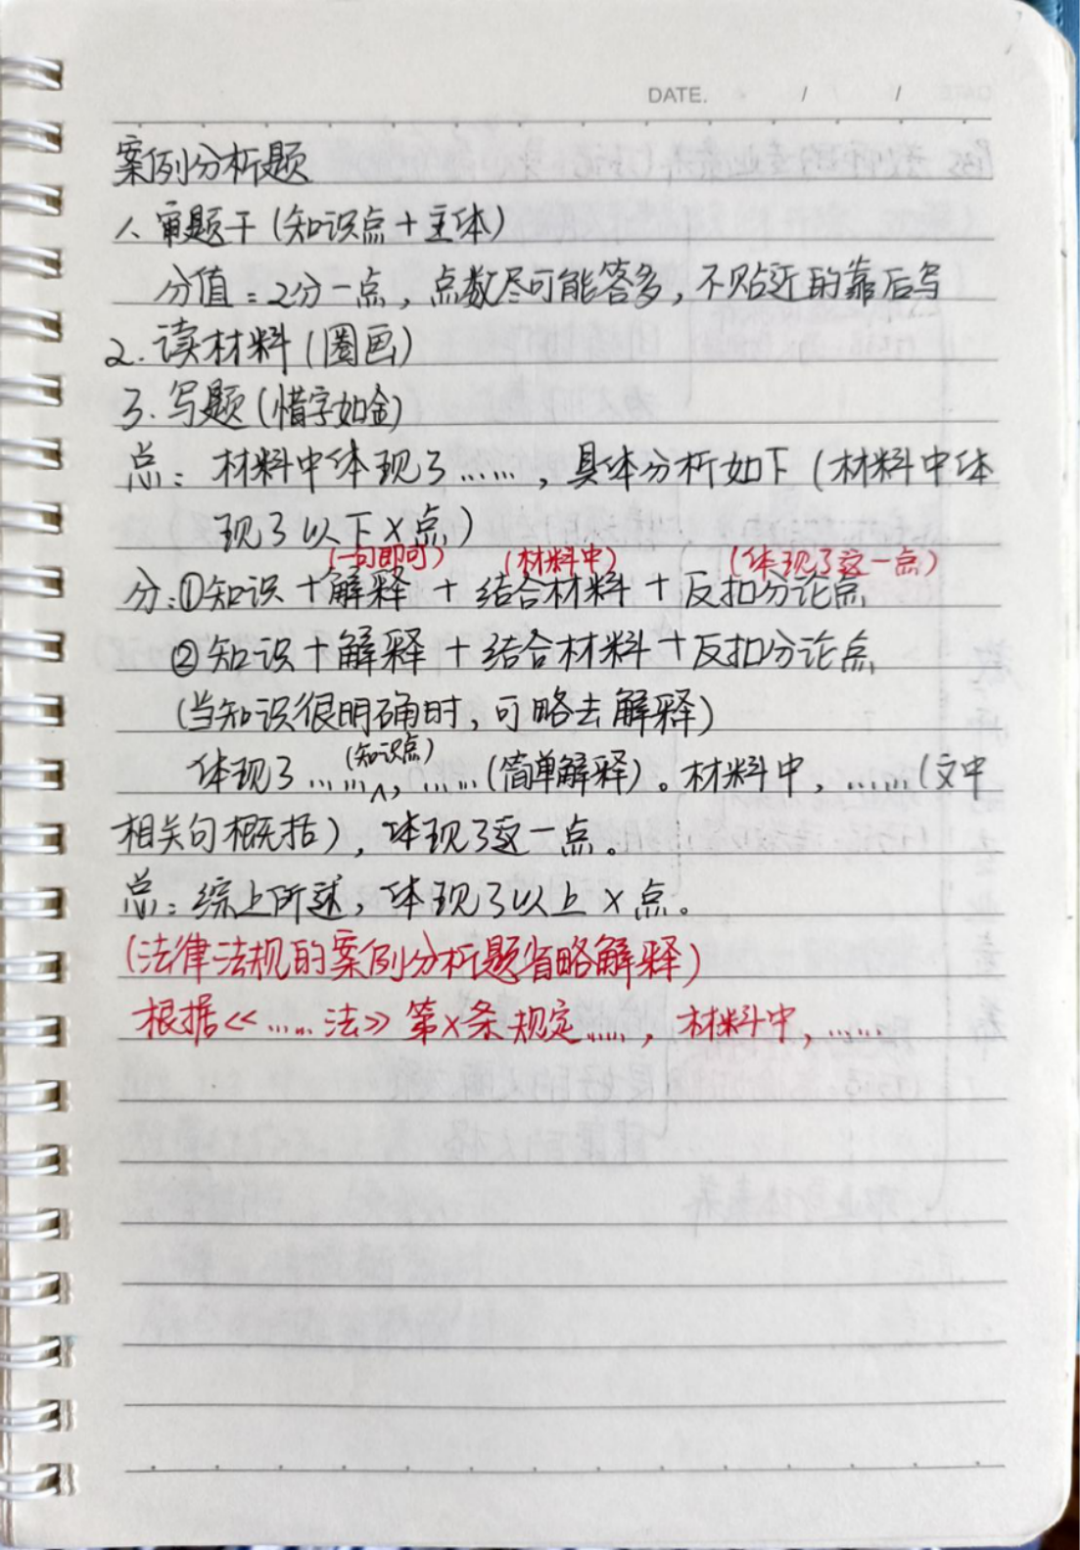 DATE. / /
案例分析题
1、审题干(知识点+主体)
分值:2分一点,点数尽可能答多,不贴近的靠后写
2.读材料(圈画)
3.写题(惜字如金)
总:材料中体现了……,具体分析如下(材料中体
现了以下X点)
(一句即可) (材料中) (体现了这一点)
分:①知识+解释+结合材料+反扣分论点
②知识+解释+结合材料+反扣分论点
(当知识很明确时,可略去解释)
(知识点)
体现了……,……(简单解释)。材料中,……(文中
相关句概括),体现了这一点。
总:综上所述,体现了以上X点。
(法律法规的案例分析题省略解释)
根据《……法》第X条规定……,材料中,……